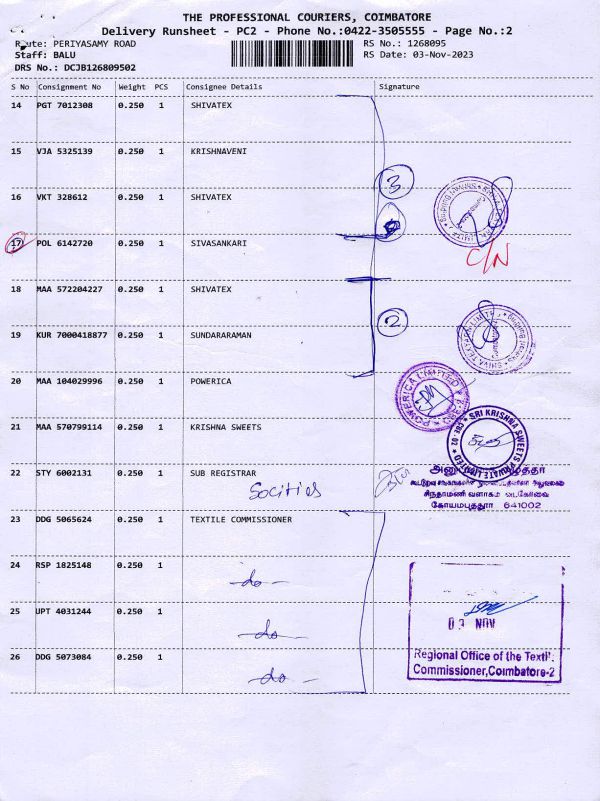 THE PROFESSIONAL COURIERS, COIMBATORE
Delivery Runsheet - PC2 - Phone No.:0422-3505555 - Page No.:2
Route: PERIYASAMY ROAD RS No.: 1268095
Staff: BALU RS Date: 03-Nov-2023
DRS No.: DCJB126809502
S No Consignment No Weight PCS Consignee Details Signature
14 PGT 7012308 0.250 1 SHIVATEX
15 VJA 5325139 0.250 1 KRISHNAVENI
16 VKT 328612 0.250 1 SHIVATEX
3
17 POL 6142720 0.250 1 SIVASANKARI
C/N
18 MAA 572204227 0.250 1 SHIVATEX
2
19 KUR 7000418877 0.250 1 SUNDARARAMAN
20 MAA 104029996 0.250 1 POWERICA
POWERICA LIMITED
21 MAA 570799114 0.250 1 KRISHNA SWEETS
SRI KRISHNA SWEETS PRIVATE LIMITED
22 STY 6002131 0.250 1 SUB REGISTRAR
Socities
சிந்தாமணி வளாகம்
கோயமுத்தூர் 641002
23 DDG 5065624 0.250 1 TEXTILE COMMISSIONER
24 RSP 1825148 0.250 1 -do-
25 UPT 4031244 0.250 1 -do-
03 NOV
26 DDG 5073084 0.250 1 -do-
Regional Office of the Textile
Commissioner,Coimbatore-2